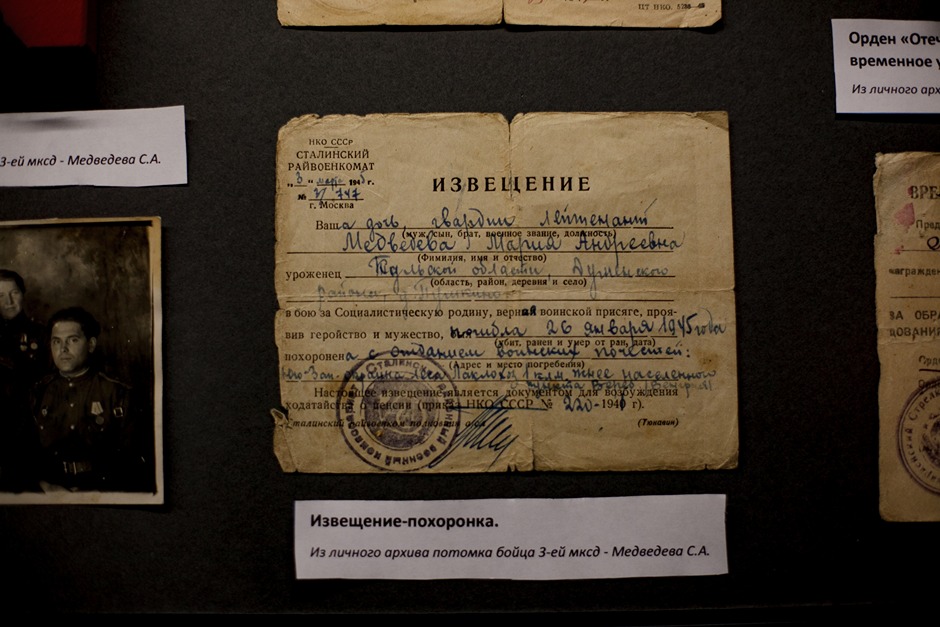 ПТ НКО.
Орден «Отеч
временное у
Из личного арх
3-ей мксд - Медведева С.А.
НКО СССР
СТАЛИНСКИЙ
РАЙВОЕНКОМАТ
„3" марта 1945 г.
№ 747
г. Москва
ИЗВЕЩЕНИЕ
Ваша дочь, гвардии лейтенант
(муж, сын, брат, военное звание, должность)
Медведева Мария Андреевна
(Фамилия, имя и отчество)
уроженец Тульской области,
(область, район, деревня и село)
района,
в бою за Социалистическую родину, верная воинской присяге, проя-
вив геройство и мужество, погибла 26 января 1945 года
(убит, ранен и умер от ран, дата)
похоронена с отданием воинских почестей:
(Адрес и место погребения)
окраина леса 1 клм. населенного
пункта (Венгрия)
Настоящее извещение является документом для возбуждения
ходатайства о пенсии (приказ НКО СССР № 220-1941 г).
Сталинский райвоенком полковник
(Тюкавин)
ВРЕ
Пред
награжден
ЗА ОБРА
Орде
Извещение-похоронка.
Из личного архива потомка бойца 3-ей мксд - Медведева С.А.